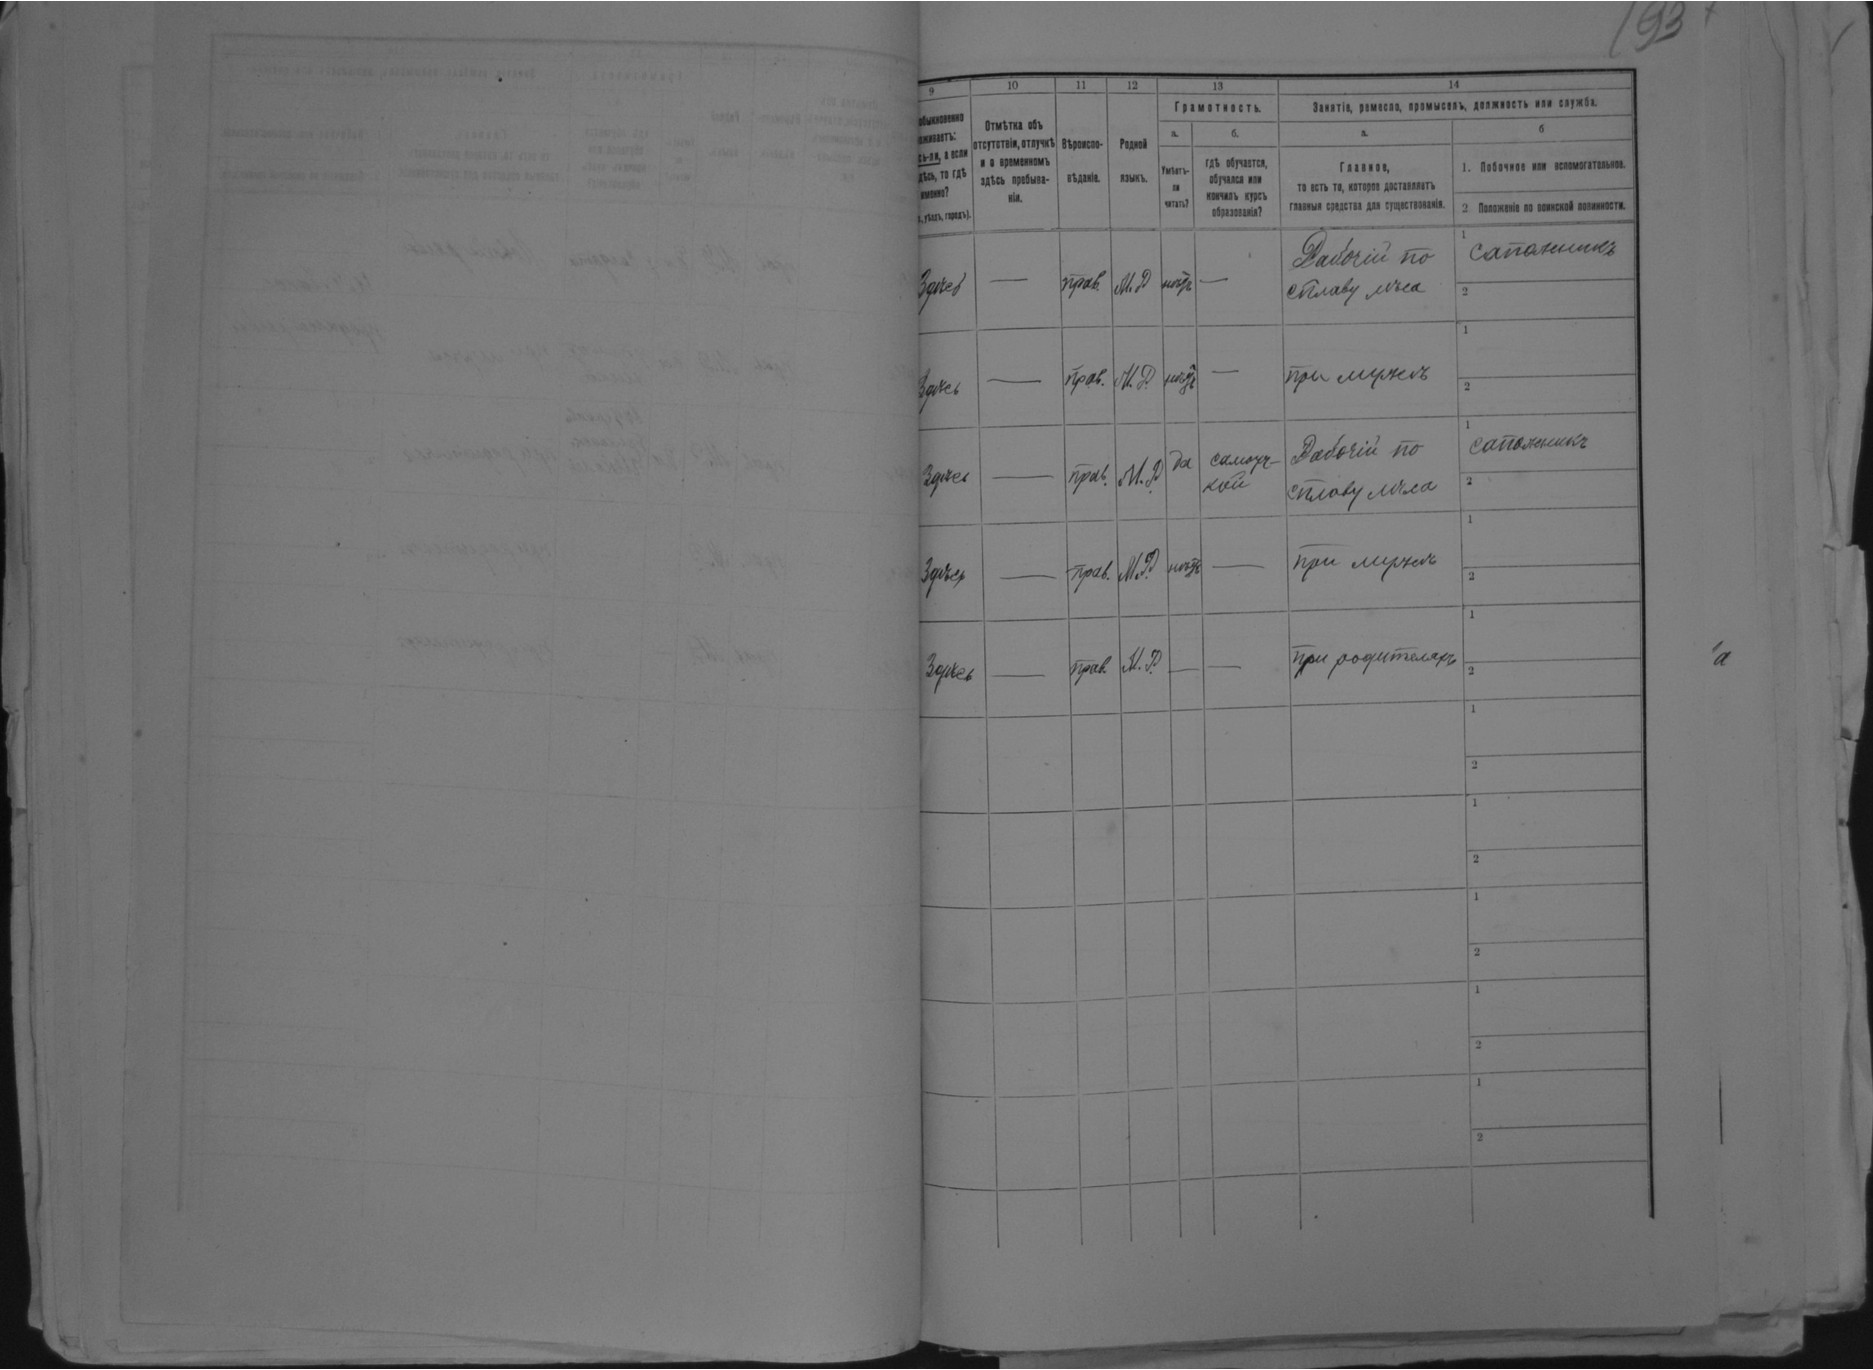 193
9 10 11 12 13 14
Грамотность. Занятіе, ремесло, промыселъ, должность или служба.
а. б. а. б
обыкновенно
живаетъ:
сь-ли, а если
дѣсь, то гдѣ
именно?
уѣздъ, городъ).
Отмѣтка объ
отсутствіи, отлучкѣ
и о временномъ
здѣсь пребыва-
ніи.
Вѣроиспо-
вѣданіе.
Родной
языкъ.
Умѣетъ-
ли
читать?
гдѣ обучается,
обучался или
кончилъ курсъ
образованія?
Главное,
то есть то, которое доставляетъ
главныя средства для существованія.
1. Побочное или вспомогательное.
2 Положеніе по воинской повинности.
Здѣсь — прав. М.Р нѣтъ — Рабочій по
сплаву лѣса
1 сапожникъ
2
Здѣсь — прав. М.Р. нѣтъ — при мужѣ
1
2
Здѣсь — прав. М.Р. да самоуч-
кой
Рабочій по
сплаву лѣса
1 сапожникъ
2
Здѣсь — прав. М.Р. нѣтъ — при мужѣ
1
2
Здѣсь — прав. М.Р. — — при родителяхъ
1
2
1
2
1
2
1
2
1
2
1
2